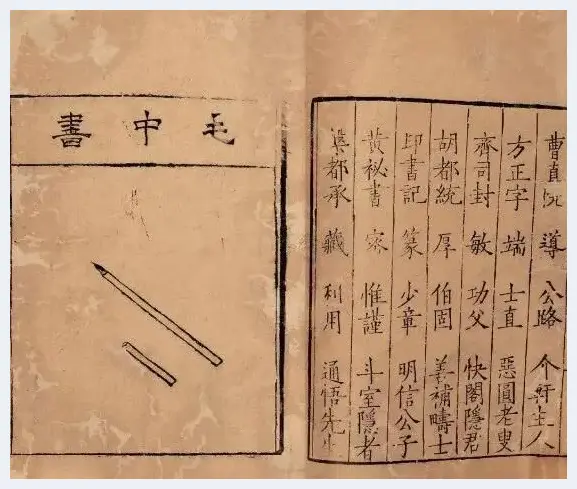 曹直院 導 公路 介軒主人
方正字 端 士直 惡圓老叟
齊司封 敏 功父 快閣隱君
胡都統 厚 伯固 善補疇士
印書記 篆 少章 明信公子
黃祕書 宻 惟謹 斗室隱者
槃都承 藏 利用 通悟先生
毛中書